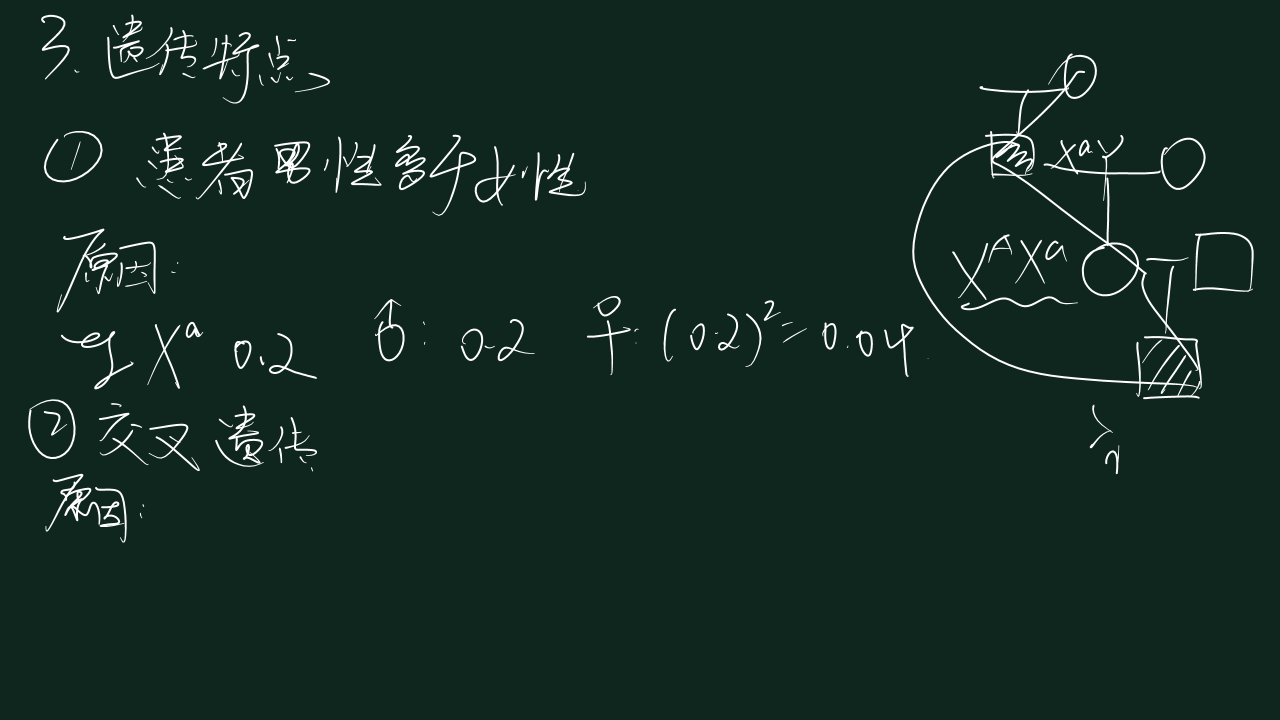 3. 遗传特点
① 患者男性多于女性
原因:
X^a 0.2 ♂: 0.2 ♀: (0.2)²= 0.04
② 交叉遗传
原因:
X^aY
X^AX^a